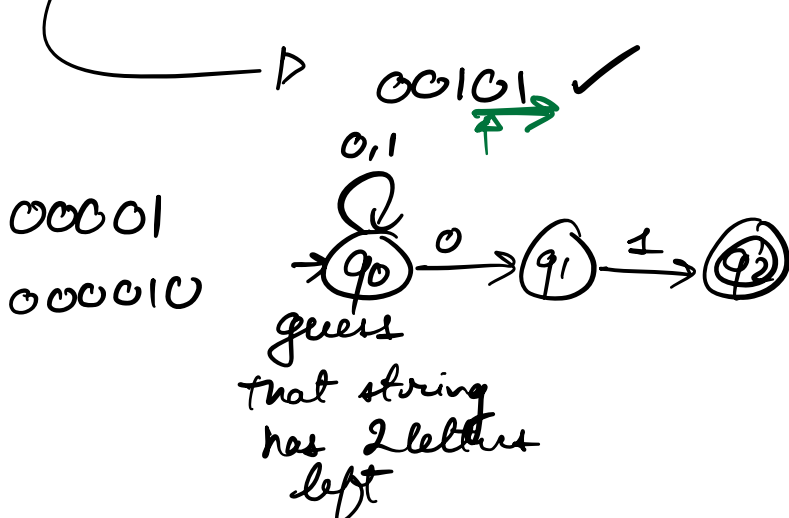 00101 ✓
0,1
00001
000010
q0 0 q1 1 q2
guess
that string
has 2 letters
left